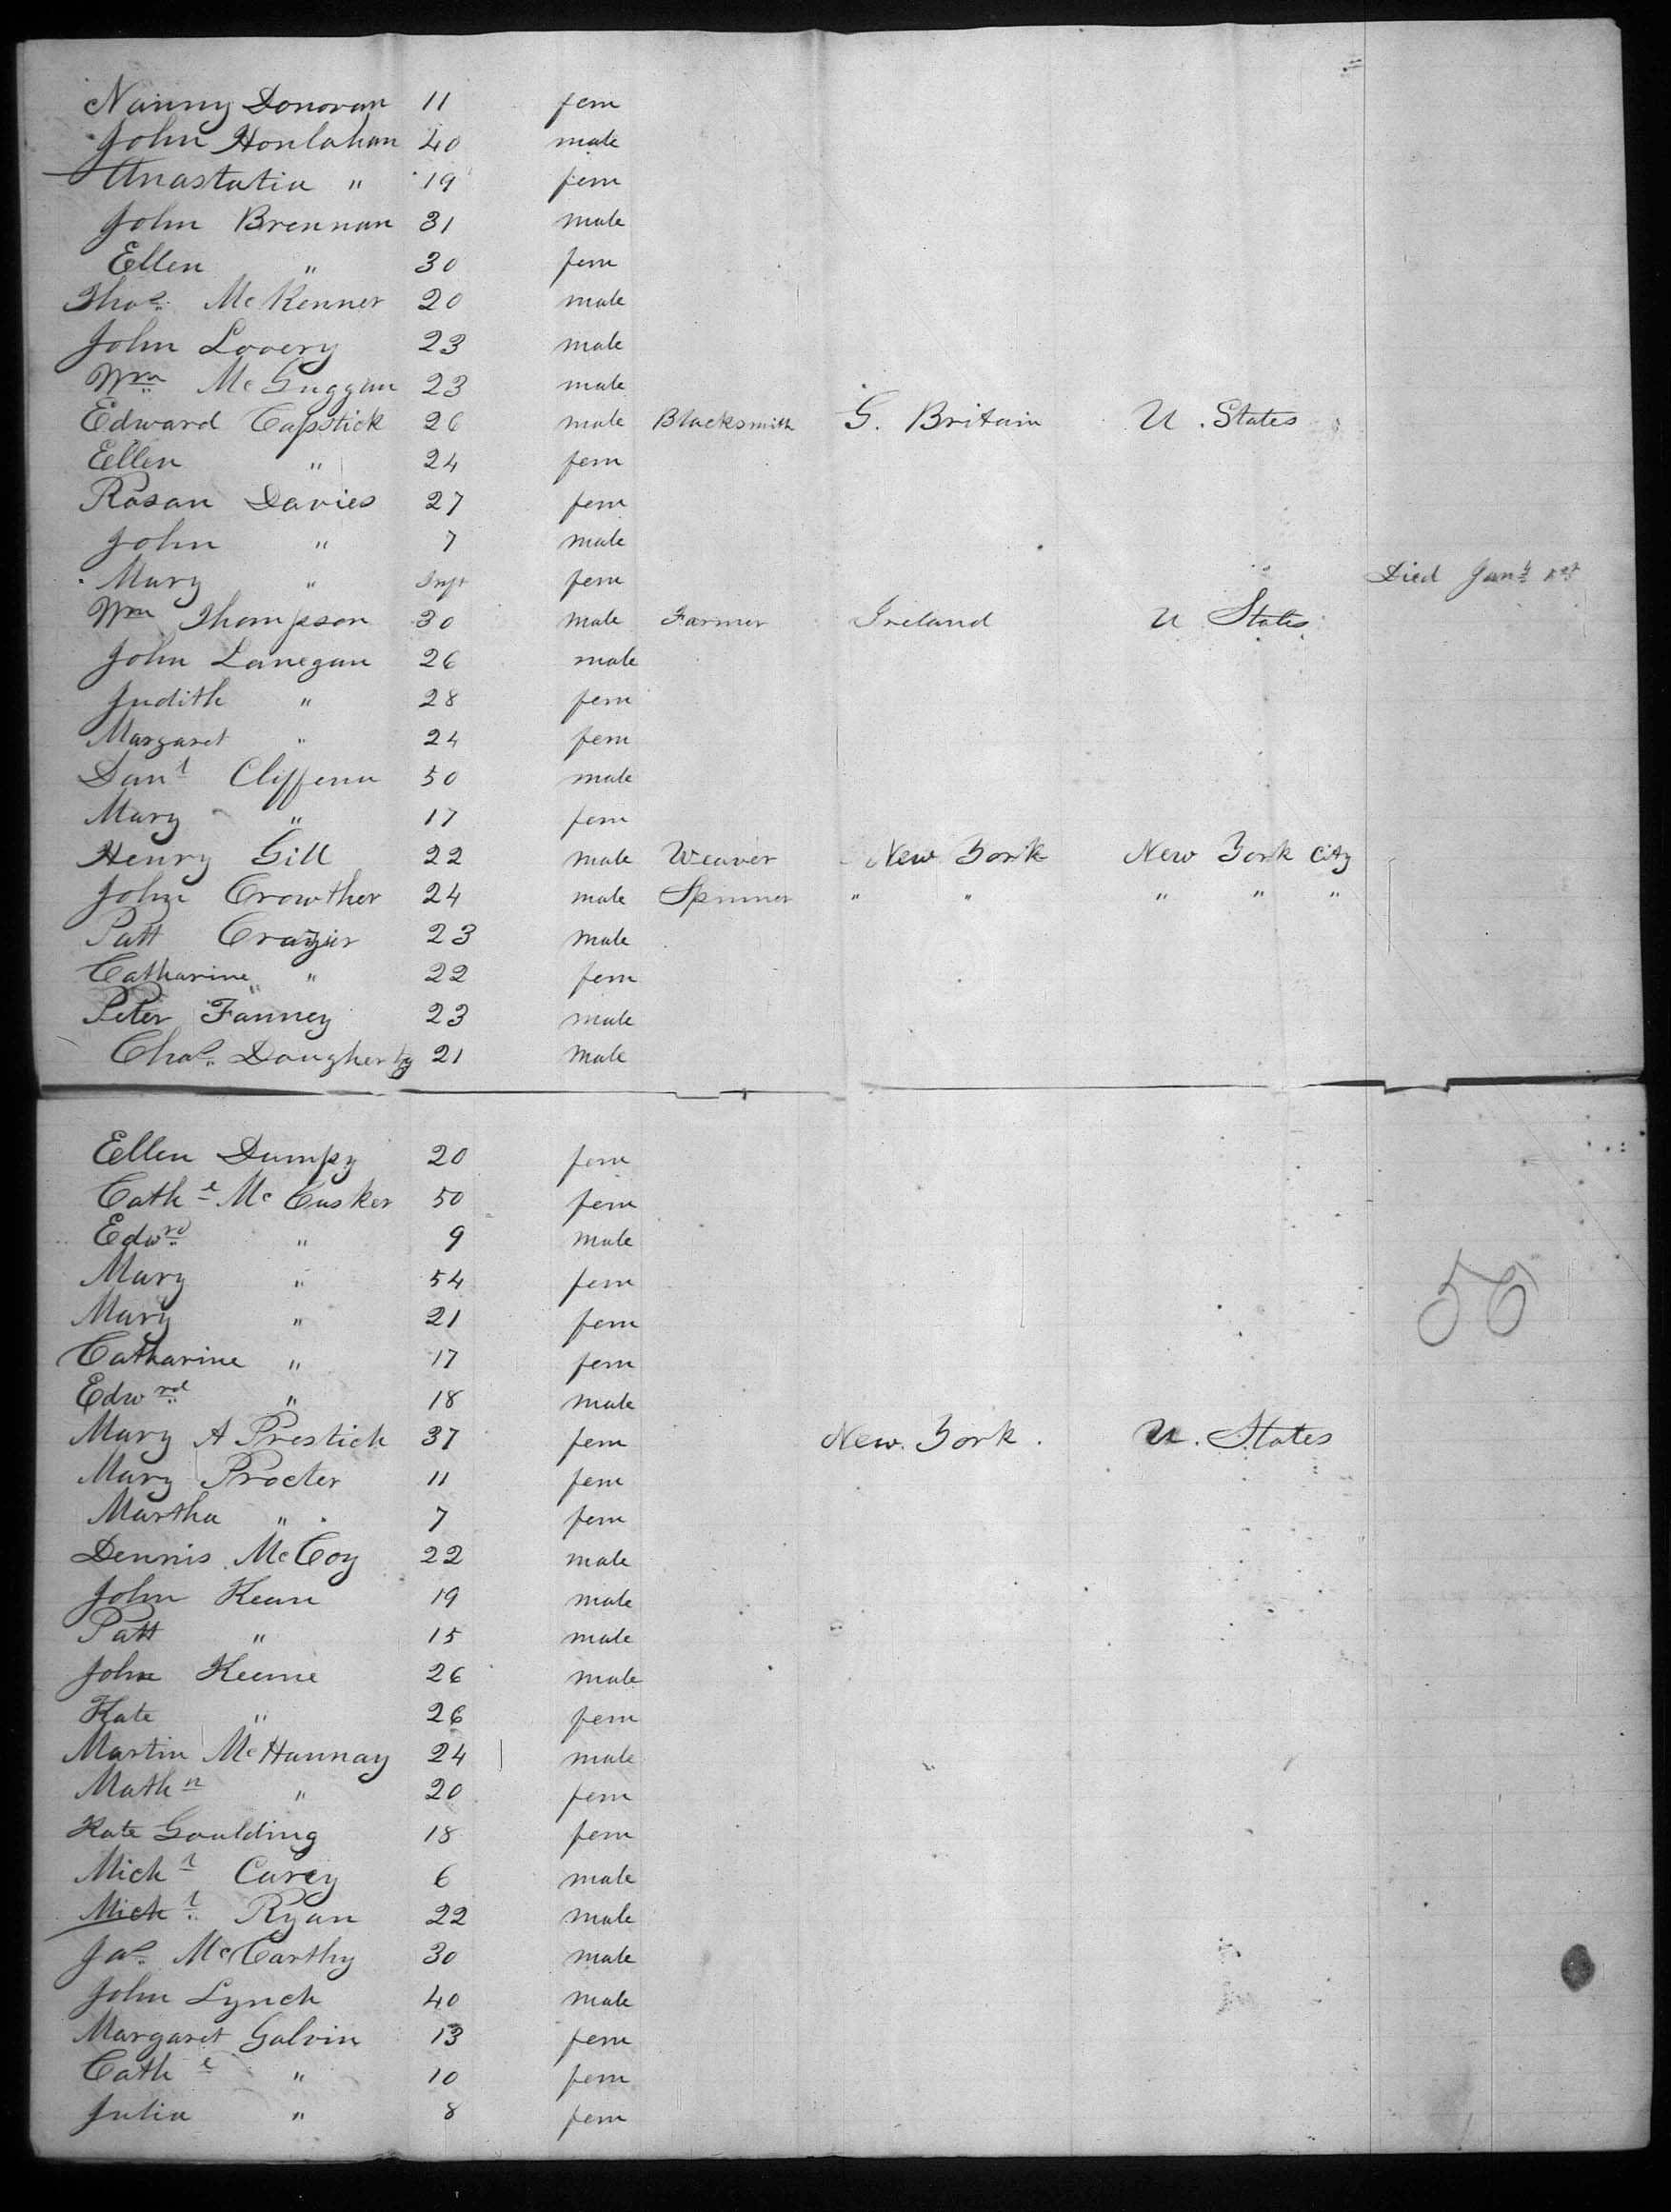 Nanny Donovan 11 fem
John Honlahan 40 male
Anastatia " 19 fem
John Brennan 31 male
Ellen " 30 fem
Thos. McKenner 20 male
John Lovery 23 male
Wm McGuggan 23 male
Edward Capstick 26 male Blacksmith G. Britain U. States
Ellen " 24 fem
Rosan Davies 27 fem
John " 7 male
Mary " Inft fem Died Jany 1st
Wm Thompson 30 male Farmer Ireland U States
John Lanegan 26 male
Judith " 28 fem
Margaret " 24 fem
Danl Cliffenn 50 male
Mary " 17 fem
Henry Gill 22 male Weaver New York New York City
John Crowther 24 male Spinner " " " " "
Patt Crazier 23 male
Catharine " 22 fem
Peter Fanney 23 male
Chas. Dougherty 21 male
Ellen Dumpy 20 fem
Cathe McCusker 50 fem
Edwrd " 9 male
Mary " 54 fem
Mary " 21 fem
Catharine " 17 fem
Edwrd " 18 male
Mary A Prestich 37 fem New York. U. States
Mary Procter 11 fem
Martha " 7 fem
Dennis McCoy 22 male
John Kean 19 male
Patt " 15 male
John Keene 26 male
Kate " 26 fem
Martin McHannay 24 male
Mathn " 20 fem
Kate Goulding 18 fem
Michl Carey 6 male
Michl Ryan 22 male
Jas. McCarthy 30 male
John Lynch 40 male
Margaret Galvin 13 fem
Cathe " 10 fem
Julia " 8 fem